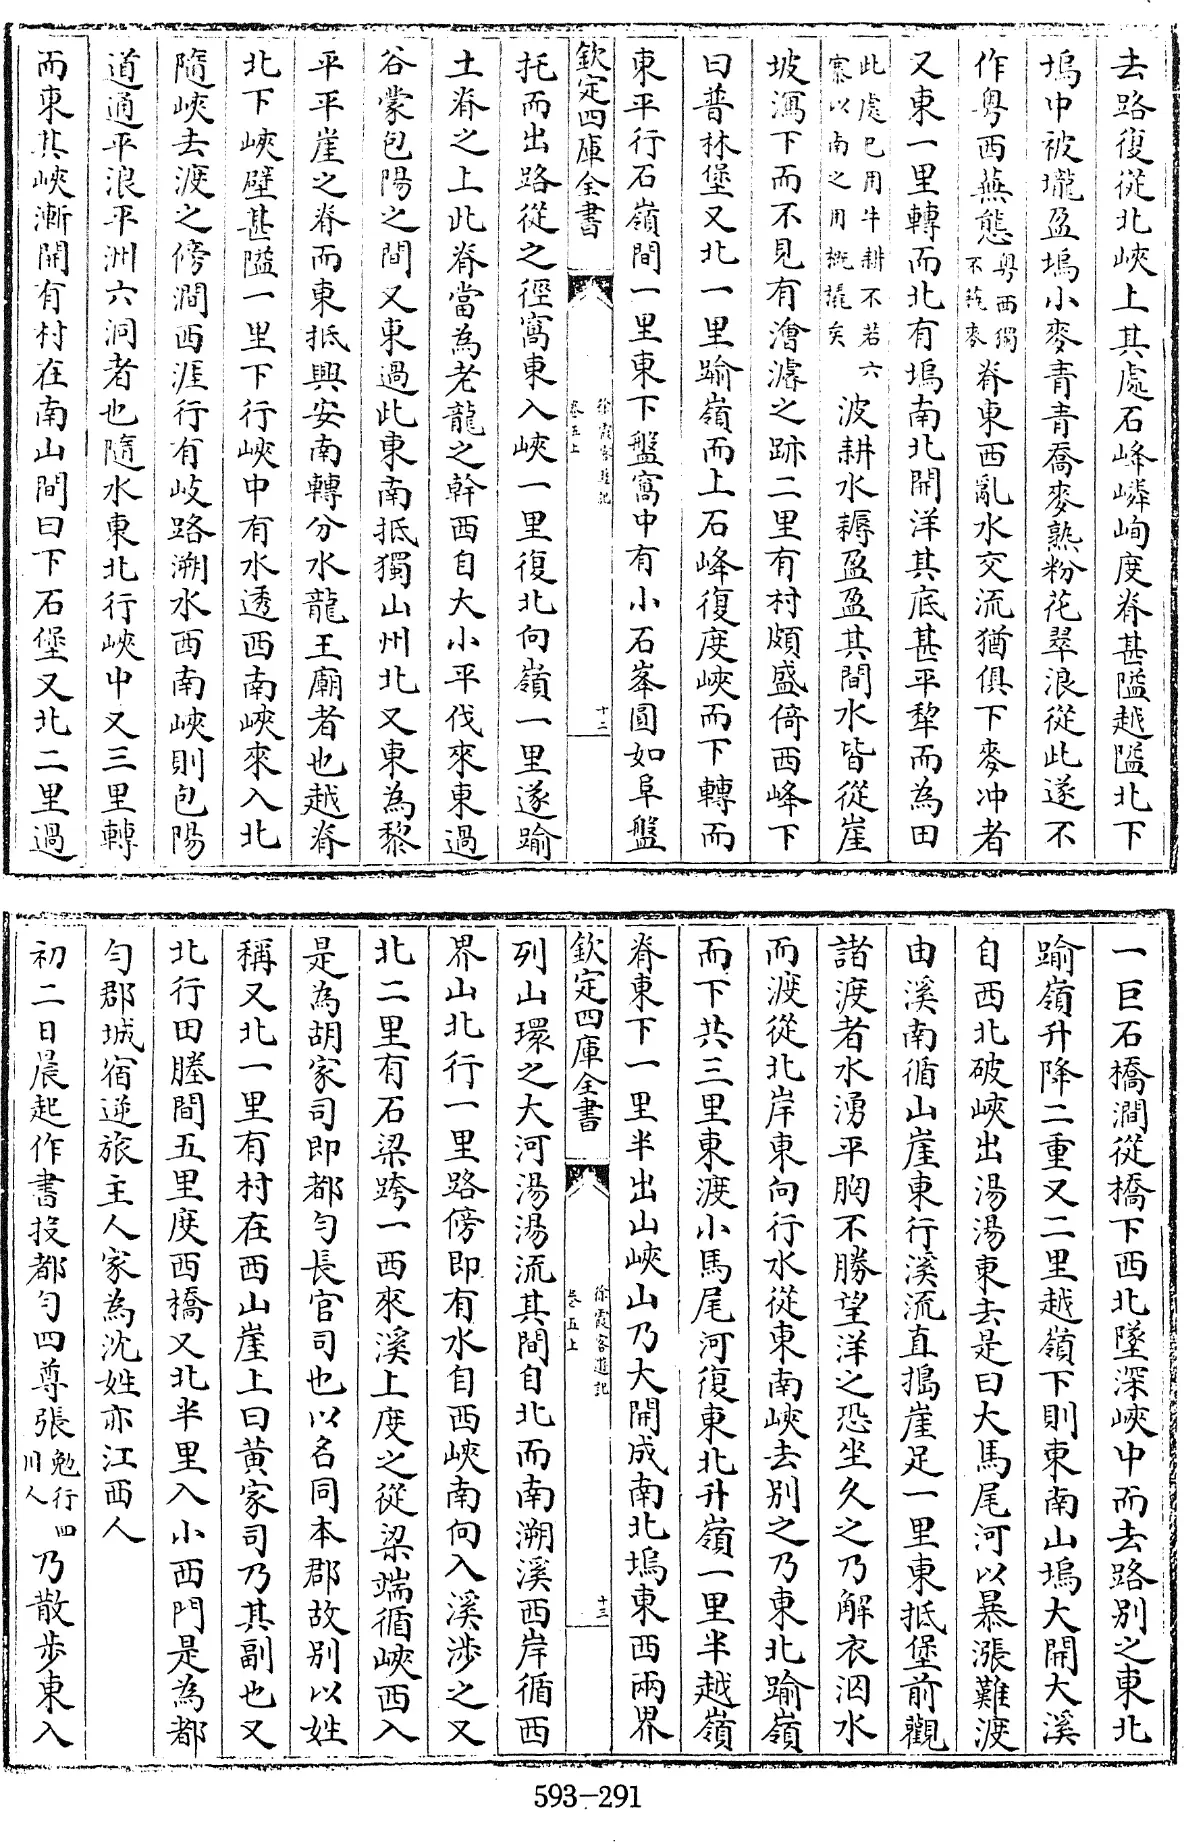 去路復從北峽上其處石峰嶙峋度脊甚隘越隘北下
塢中被壠盈塢小麥青青喬麥熟粉花翠浪從此遂不
作粤西蕪態粤西獨不蓺麥脊東西亂水交流猶俱下麥冲者
又東一里轉而北有塢南北開洋其底甚平犂而為田
此處已用牛耕不若六寨以南之用橛橇矣波耕水耨盈盈其間水皆從崖
坡瀉下而不見有澮滹之跡二里有村頗盛倚西峰下
曰普林堡又北一里踰嶺而上石峰復度峽而下轉而
東平行石嶺間一里東下盤窩中有小石峯圓如阜盤
欽定四庫全書
徐霞客遊記
卷五上
十二
托而出路從之徑窩東入峽一里復北向嶺一里遂踰
土脊之上此脊當為老龍之幹西自大小平伐來東過
谷蒙包陽之間又東過此東南抵獨山州北又東為黎
平平崖之脊而東抵興安南轉分水龍王廟者也越脊
北下峽壁甚隘一里下行峽中有水透西南峽來入北
隨峽去渡之傍澗西涯行有岐路溯水西南峽則包陽
道通平浪平洲六洞者也隨水東北行峽中又三里轉
而東其峽漸開有村在南山間曰下石堡又北二里過
一巨石橋澗從橋下西北墜深峽中而去路别之東北
踰嶺升降二重又二里越嶺下則東南山塢大開大溪
自西北破峽出湯湯東去是曰大馬尾河以暴漲難渡
由溪南循山崖東行溪流直搗崖足一里東抵堡前觀
諸渡者水湧平胸不勝望洋之恐坐久之乃解衣泅水
而渡從北岸東向行水從東南峽去别之乃東北踰嶺
而下共三里東渡小馬尾河復東北升嶺一里半越嶺
脊東下一里半出山峽山乃大開成南北塢東西兩界
欽定四庫全書
徐霞客遊記
卷五上
十三
列山環之大河湯湯流其間自北而南溯溪西岸循西
界山北行一里路傍即有水自西峽南向入溪涉之又
北二里有石梁跨一西來溪上度之從梁端循峽西入
是為胡家司即都勻長官司也以名同本郡故别以姓
稱又北一里有村在西山崖上曰黄家司乃其副也又
北行田塍間五里度西橋又北半里入小西門是為都
勻郡城宿逆旅主人家為沈姓亦江西人
初二日晨起作書投都勻四尊張勉行四川人乃散步東入
593-291